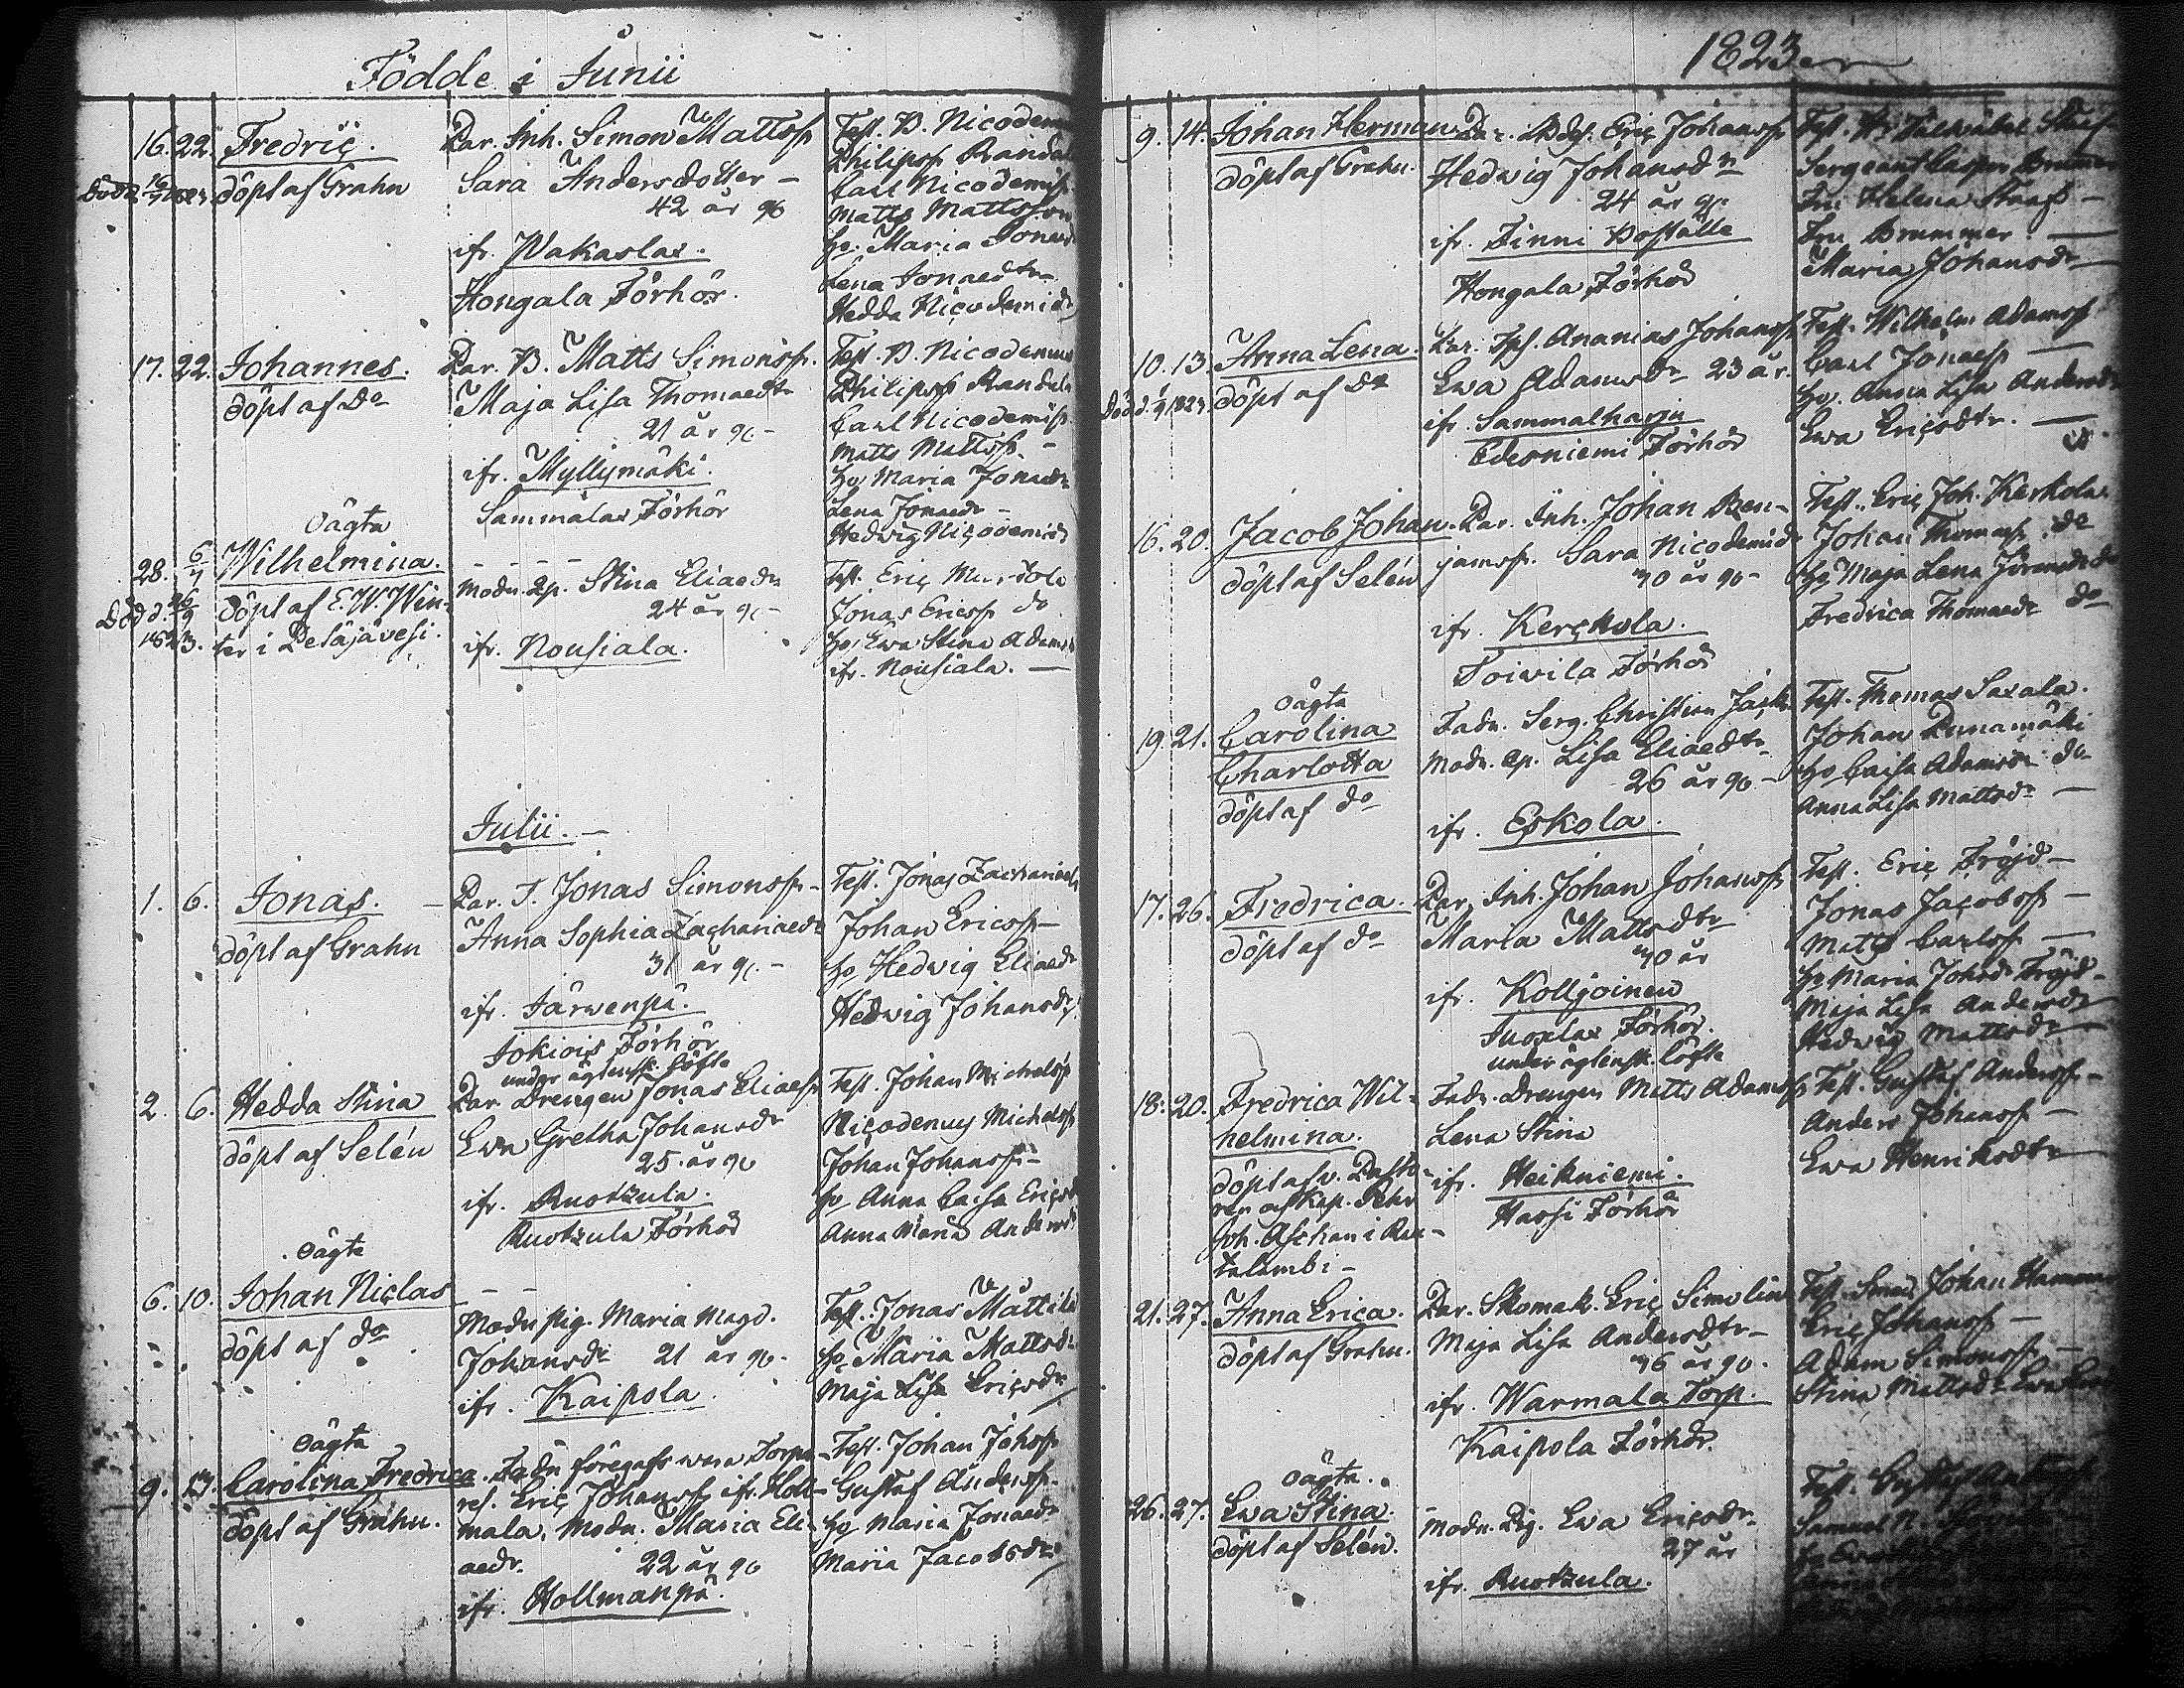 Födde i Junii
16. 22. Fredric.
Död d.
döpt af Grahn
Par. Inh. Simon Mattss
Sara Andersdotter –
42 år gl
ifr. Wakaslax.
Hongala Förhör.
Test. B. Nicodemus
Philipss Randala
Carl Nicodemiss
Matts Mattsson
ho. Maria Jonaed
Lena Jonaedtr
Hedda Nicodemidr
17. 22. Johannes.
döpt af Do
Par. B. Matts Simonss.
Maja Lisa Thomaedtr
21 år gl –
ifr. Myllymäki.
Sammalax Förhör
Test. B. Nicodemus
Philipss Randala
Carl Nicodemiss
Matts Mattss. –
ho Maria Jonaedr
Lena Jonaedr –
Hedwig Nicodemidr
oägta
28. 6/7 Wilhelmina.
Död d. 26/9
1823.
döpt af E. W. Win-
ter i Petäjävesi.
Modn. Stina Eliaedr
24 år gl –
ifr. Nousiala.
Test. Eric
Jonas Ericss do
ho Ewa Stina Adamsdr
ifr. Nousiala. –
Julii. –
1. 6. Jonas. –
döpt af Grahn
Par. T. Jonas Simonss –
Anna Sophia Zachariaedr
31 år gl. –
ifr. Järwenpä.
Jokiois Förhör
Test. Jonas Zachariaess
Johan Ericss –
ho Hedwig Eliaedr
Hedwig Johansdr
2. 6. Hedda Stina
döpt af Selén
under äglensk. löfte
Par Drengen Jonas Eliaess
Ewa Gretha Johansdr
25 år gl
ifr. Ruotzula.
Ruotzula Förhör
Test. Johan Michelss
Nicodemus Michelss
Johan Johanss –
ho Anna Caisa Ericsdr
Anna Maria Andersdr
oägta
6. 10. Johan Niclas
döpt af do
Modn pig. Maria Magd.
Johansdr 21 år gl.
ifr. Kaipola.
Test. Jonas Mattila
ho Maria Mattsdr
Maja Lisa Ericsdr
oägta
9. 13. Carolina Fredrica.
döpt af Grahn.
Fadn föregafs wara Torpa-
res. Eric Johanss ifr. Holl-
mala, Modn. Maria Eli-
aedr. 22 år gl
ifr. Hollmanpä.
Test. Johan Johss
Gustaf Anderss.
ho Maria Jonaedr
Maria Jacobsdr
1823
9. 14. Johan Herman
döpt af Grahn.
Par. Bdes. Eric Johanss
Hedwig Johansdr
24 år gl.
ifr. Finni Boställe
Hongala Förhör
Test. Hr
Sergeant Casper Brummer
Fru Helena Staaf –
Fru Brummer. –
Maria Johansdr –
10. 13. Anna Lena.
döpt af do
Par. Sph. Ananias Johanss
Ewa Adamsdr 23 år.
ifr. Sammalharju
Edesniemi Förhör
Test. Wilhelm Adamss
Carl Jonaess –
ho. Anna Lisa Andersdr
Ewa Ericsdtr. –
16. 20. Jacob Johan.
döpt af Selén
Par. Inh. Johan Ben-
jamss. Sara Nicodemidr
40 år gl –
ifr. Kerckola.
Toivila Förhör
Test. Eric Joh. Kerkola
Johan Thomass. do
ho Maja Lena
Fredrica Thomaedr do
oägta
19. 21. Carolina
Charlotta
döpt af do
Fadn. Serg. Christian
Modn. Lisa Eliaedtr
26 år gl –
ifr. Eskola.
Test. Thomas Saxala.
Johan Runamäki
ho Caisa Adamsdr do
Anna Lisa Mattsdr –
17. 26. Fredrica.
döpt af do
Par. Inh. Johan Johanss
Maria Mattsdtr
40 år
ifr. Kolljoinen
Juoxlax Förhör.
Test. Eric Fröjd –
Jonas Jacobss –
Matts Carlss –
ho Maria Johsdr Fröjd –
Maja Lisa Andersdr
Hedwig Mattsdr –
18. 20. Fredrica Wil-
helmina.
döpt af v. Pasto-
ren och Kap. Pehr
Joh. Aschan i Rau-
talambi –
under äglensk. löfte
Fadn. Drengen Matts Adamss
Lena Stina
ifr. Heikniemi.
Hassi Förhör
Test. Gustaf Anderss –
Anders Johanss –
Ewa Henriksdtr
21. 27. Anna Erica.
döpt af Grahn.
Par. Skomak. Eric Simelin
Maja Lisa Andersdtr –
46 år gl.
ifr. Warmala Torp.
Kaipola Förhör.
Test. Smed. Johan
Eric Johanss –
Adam Simonss –
Stina Mattsdr
oägta.
26. 27. Ewa Stina.
döpt af Selén.
Modn. Pig. Ewa Ericsdr.
27 år
ifr. Ruotzula.
Test. Gustaf
Samuel